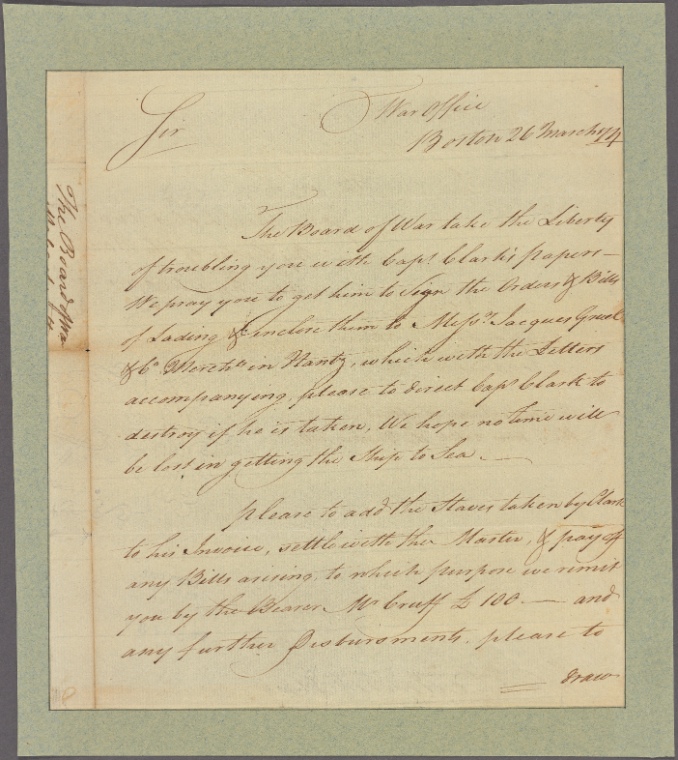 War Office
Boston 26 March 1774
Sir
The Board of War take the Liberty
of troubling you with Capt. Clark's papers—
We pray you to get him to sign the Orders & Bills
of Lading & inclose them to Messrs. Jacques Gruel
& Co. Merchts in Nantz, which with the Letters
accompanying, please to direct Capt Clark to
destroy if he is taken, We hope no time will
be lost in getting the Ship to Sea.—
please to add the Staves taken by Clark
to his Invoice, settle with the Master, & pay off
any Bills arising, to which purpose we remit
you by the Bearer Mr Cruff £ 100 — and
any further Disbursments, please to
draw
The Board of War